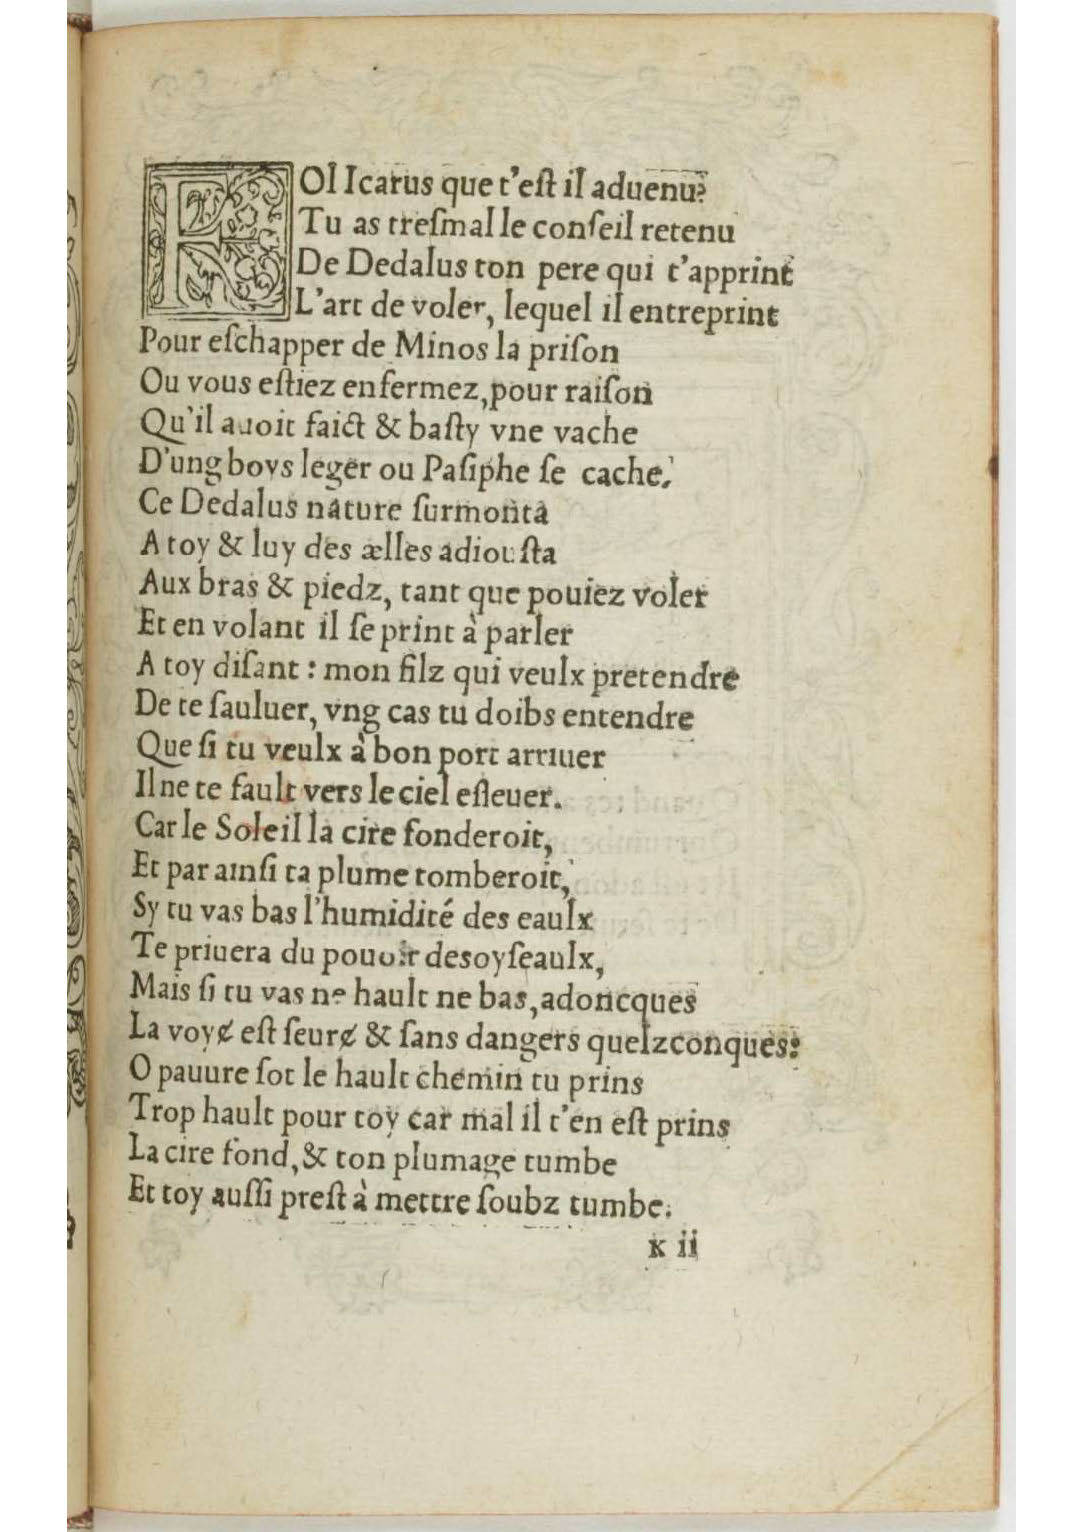 FOl Icarus que t'eſt il aduenu?
Tu as treſmal le conſeil retenu
De Dedalus ton pere qui t'apprint
L'art de voler, lequel il entreprint
Pour eſchapper de Minos la priſon
Ou vous eſtiez enfermez, pour raiſon
Qu'il auoit faict & baſty vne vache
D'ung boys leger ou Paſiphe ſe cache.
Ce Dedalus nature ſurmonta
A toy & luy des ælles adiouſta
Aux bras & piedz, tant que pouiez voler
Et en volant il ſe print à parler
A toy diſant : mon filz qui veulx pretendre
De te ſauluer, vng cas tu doibs entendre
Que ſi tu veulx à bon port arriuer
Il ne te fault vers le ciel eſleuer.
Car le Soleil la cire fonderoit,
Et par ainſi ta plume tomberoit,
Sy tu vas bas l'humidité des eaulx
Te priuera du pouoir desoyſeaulx,
Mais ſi tu vas ne hault ne bas, adoncques
La voyɇ eſt ſeurɇ & ſans dangers quelzconques:
O pauure ſot le hault chemin tu prins
Trop hault pour toy car mal il t'en eſt prins
La cire fond, & ton plumage tumbe
Et toy auſſi preſt à mettre ſoubz tumbe.
K ii